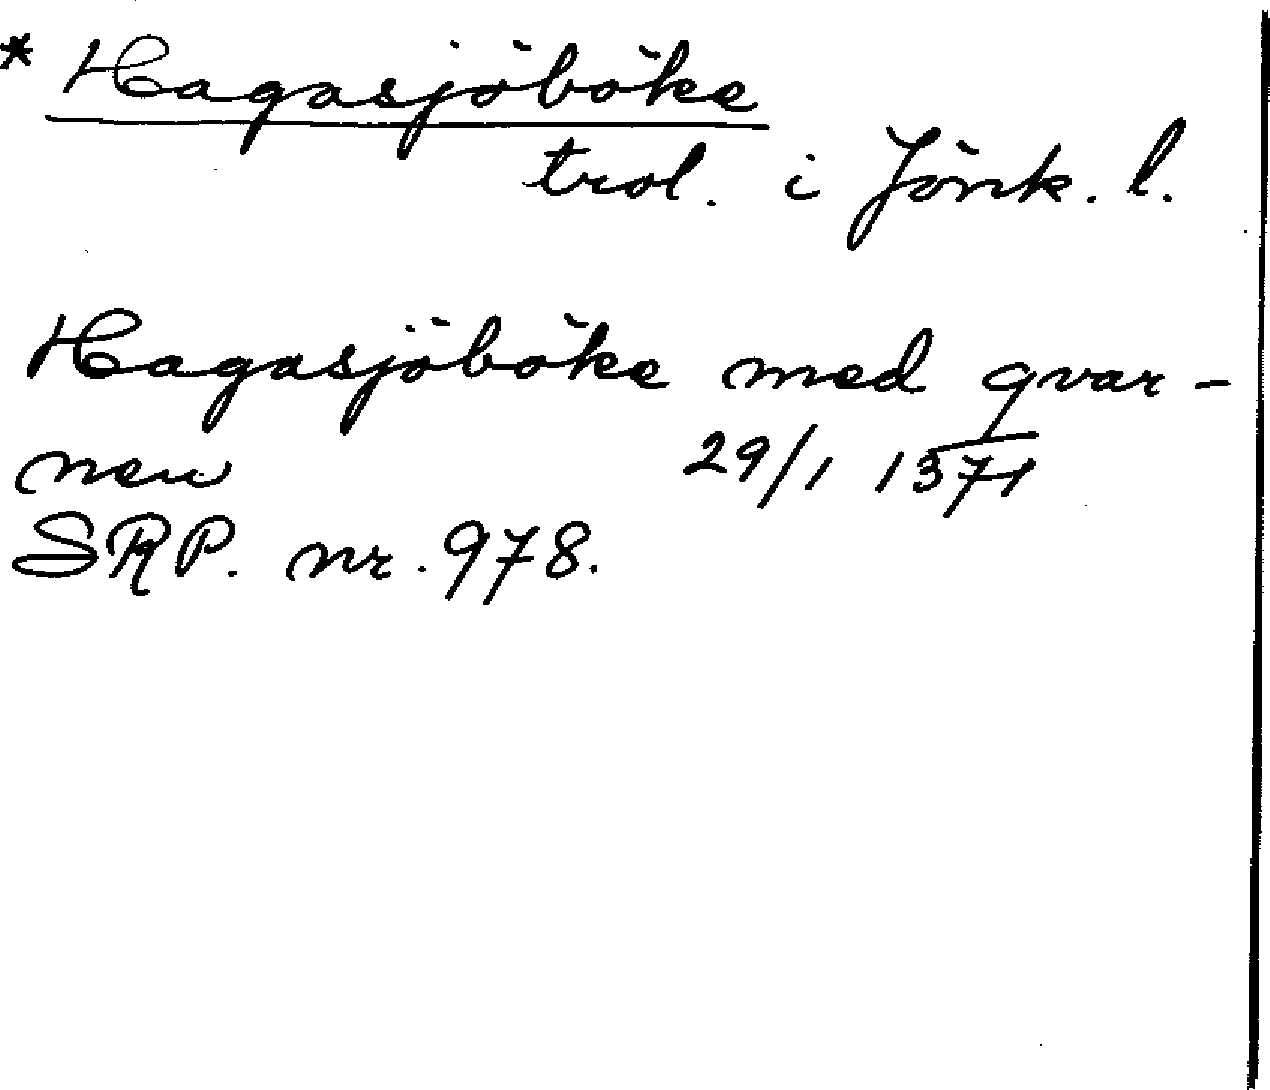 * Hagasjöböke
trol. i Jönk. l.
Hagasjöböke med qvar-
nen 29/1 1371
SRP. nr. 978.